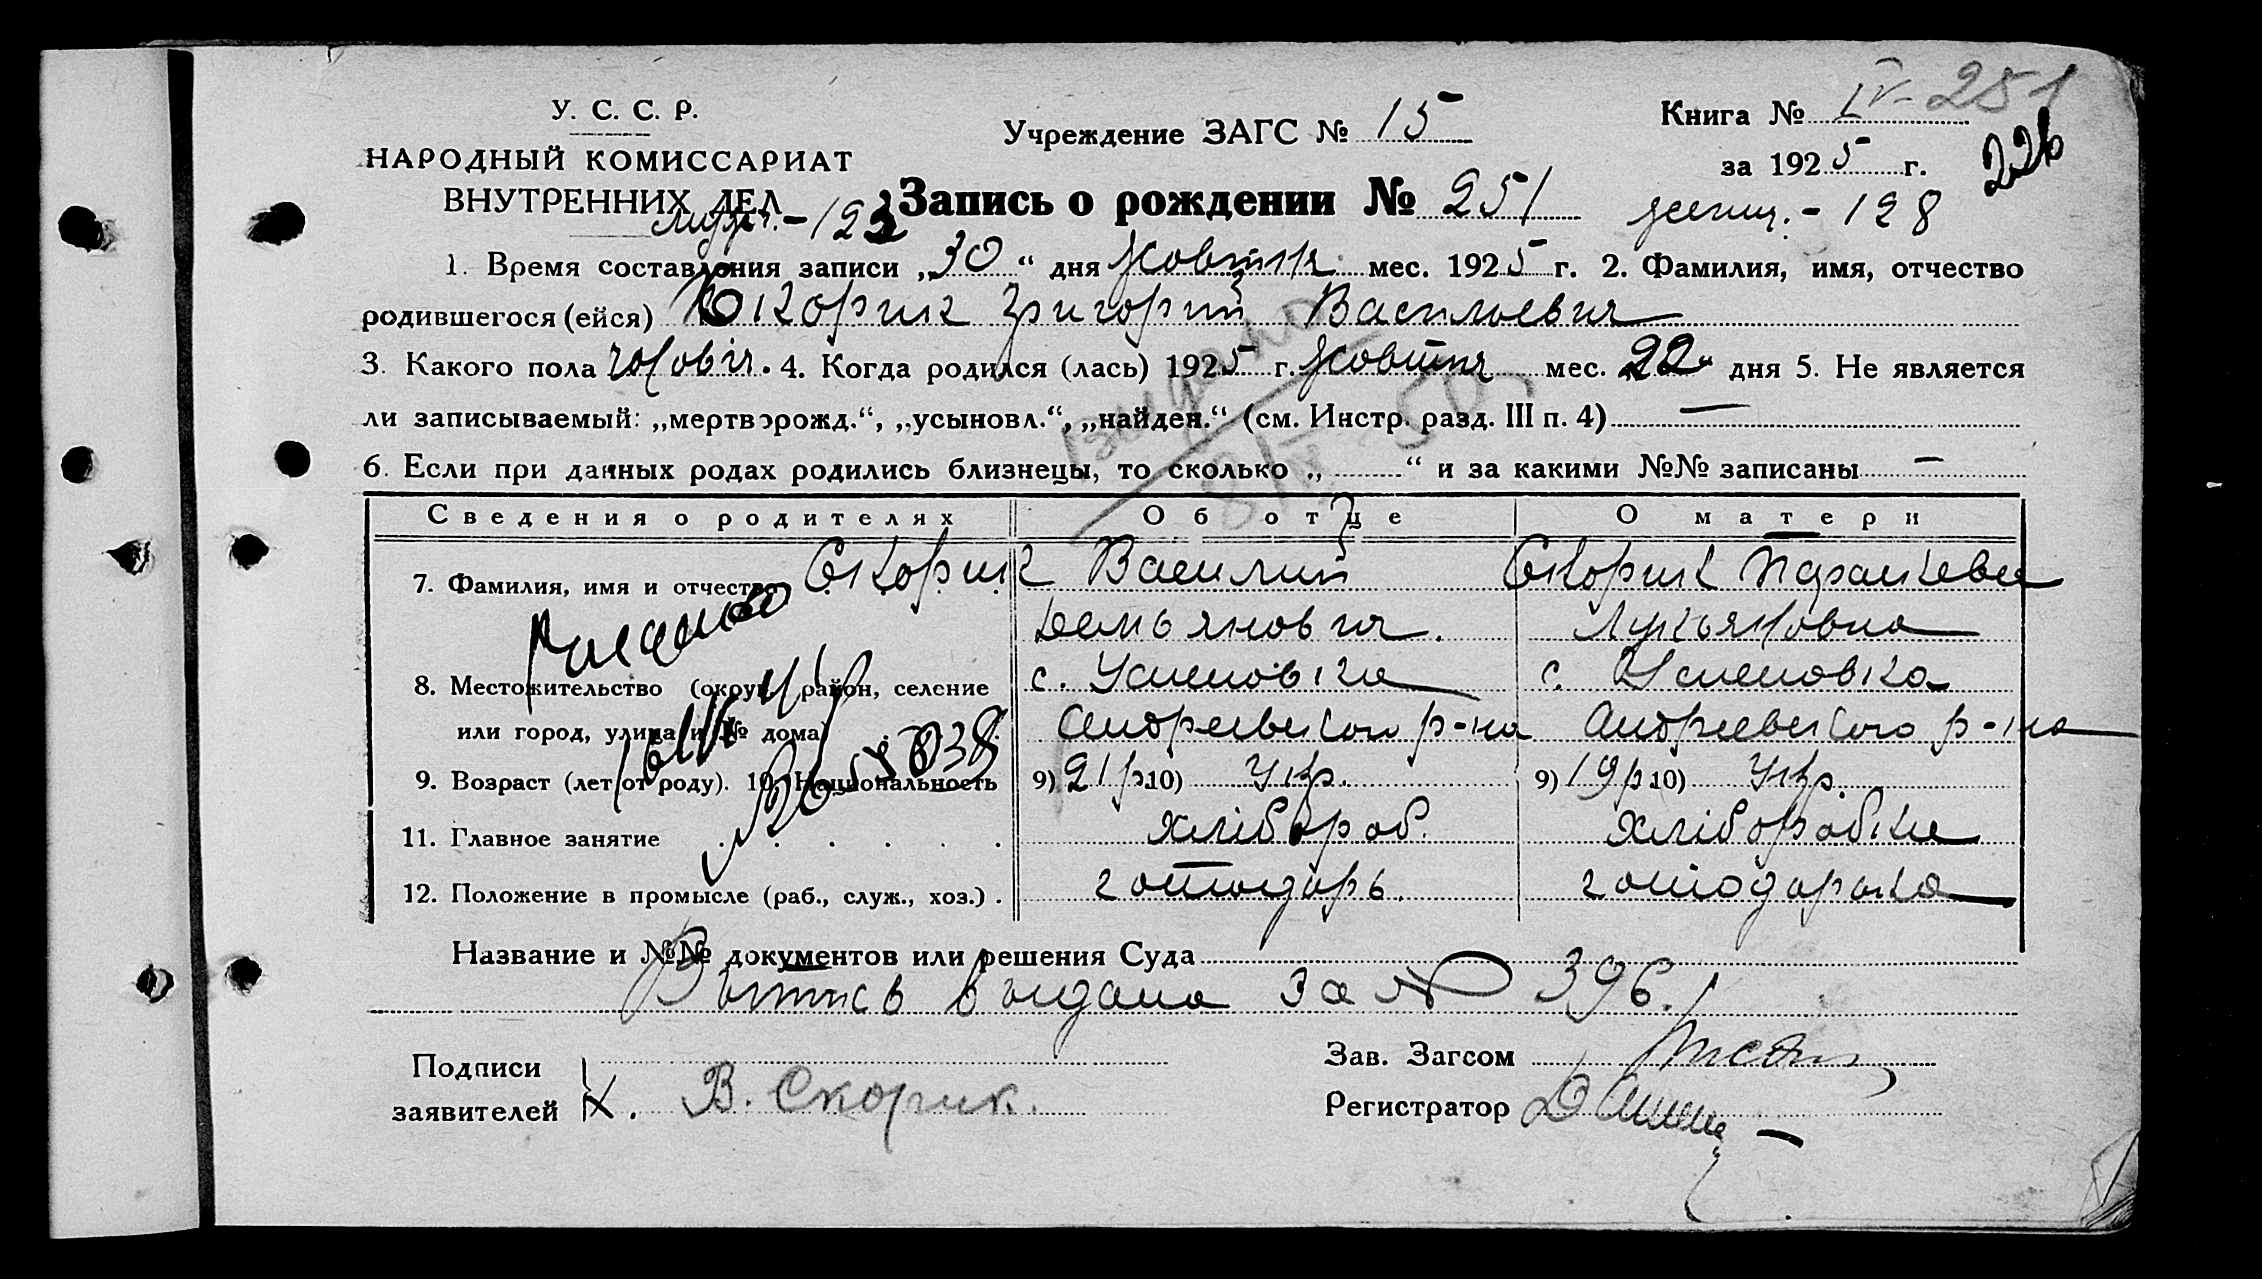 IV-251
У. С. С. Р.
Учреждение ЗАГС № 15
Книга №
НАРОДНЫЙ КОМИССАРИАТ
за 1925 г.
226
ВНУТРЕННИХ ДЕЛ
Запись о рождении № 251
- 128
1. Время составления записи „30“ дня Жовтня мес. 1925 г. 2. Фамилия, имя, отчество
родившегося (ейся) Скорик Григорий Васильевич
3. Какого пола чоловіч. 4. Когда родился (лась) 1925 г. Жовтня мес. 22 дня 5. Не является
ли записываемый: „мертворожд.“, „усыновл.“, „найден.“ (см. Инстр. разд. III п. 4) —
6. Если при данных родах родились близнецы, то сколько „ “ и за какими №№ записаны —
видано
Сведения о родителях Об отце О матери
7. Фамилия, имя и отчество Скорик Василий Скорик Параскева
Демьянович. Лукьяновна
8. Местожительство (округ, район, селение с. Успеновка с. Успеновка
или город, улица и № дома) Андреевского р-на Андреевского р-на
9. Возраст (лет от роду). 10. Национальность 9) 21 р. 10) Укр. 9) 19 р. 10) Укр.
11. Главное занятие хлібороб. хліборобка
12. Положение в промысле (раб., служ., хоз.) господарь. господарька
Название и №№ документов или решения Суда
Выпись выдана за № 396.
Подписи
заявителей
В. Скорик.
Зав. Загсом
Регистратор